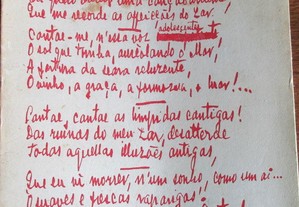 Que me recorde as affeicções do Lar,
Cantae-me, n'essa voz
adolescente
O sol que tomba, aureolando o Mar,
A fartura da seara reluzente,
O vinho, a graça, a formosura, o luar!...
Cantae, cantae as limpidas cantigas!
Das ruinas do meu Lar, desatterae
Todas aquellas illuzões antigas,
Que eu vi morrer, n'um sonho, como um ai...
O suaves e frescas raparigas,